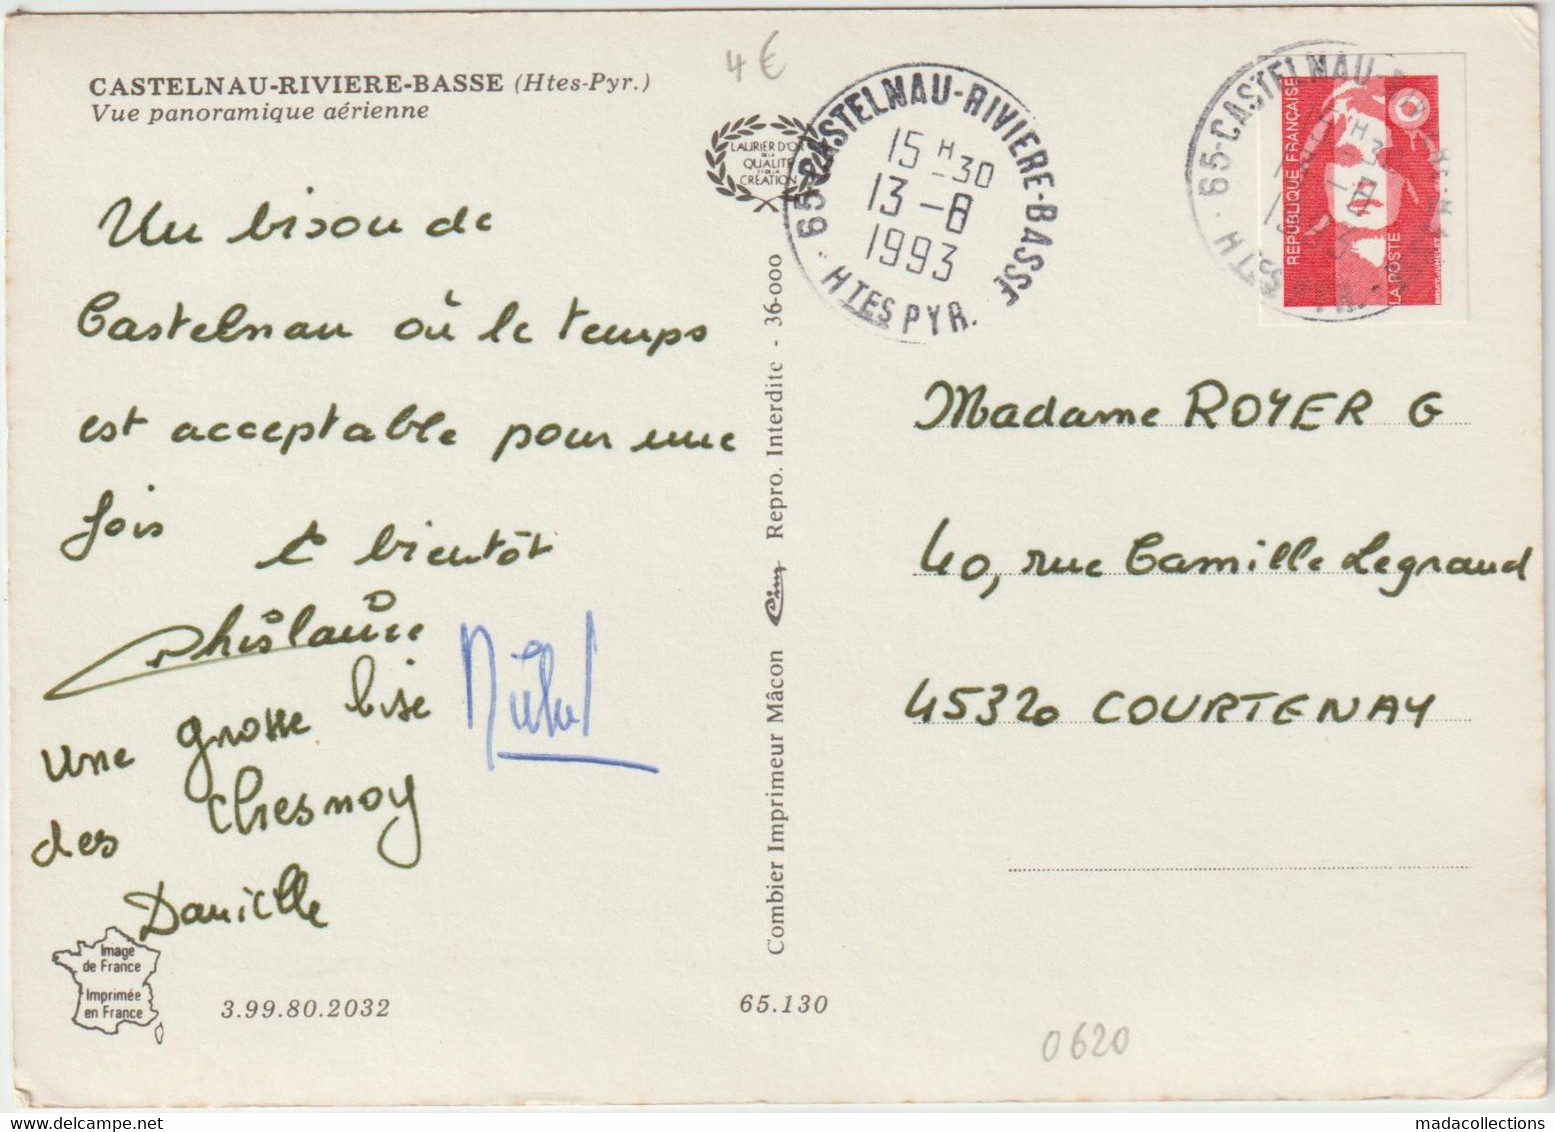 4€
CASTELNAU-RIVIERE-BASSE (Htes-Pyr.)
Vue panoramique aérienne
LAURIER D'OR
DE LA
QUALITÉ
ET DE LA
CRÉATION
65-CASTELNAU-RIVIERE-BASSE
15 H 30
13-8
1993
HTES PYR.
65-CASTELNAU-
REPUBLIQUE FRANÇAISE
LA POSTE
Un bisou de
Castelnau où le temps
est acceptable pour une
fois
A bientôt
Ghislaine
Michel
une grosse bise
des Chesnoy
Danielle
Madame ROYER G
40, rue Camille Legrand
45320 COURTENAY
Combier Imprimeur Mâcon Cim Repro. Interdite - 36-000
Image
de France
Imprimée
en France
3.99.80.2032
65.130
0620
madacollections